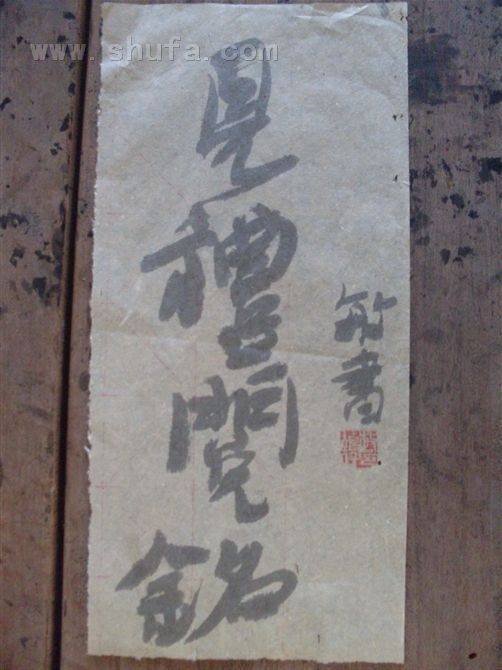 www.shufa.com
見禮閱銘
書